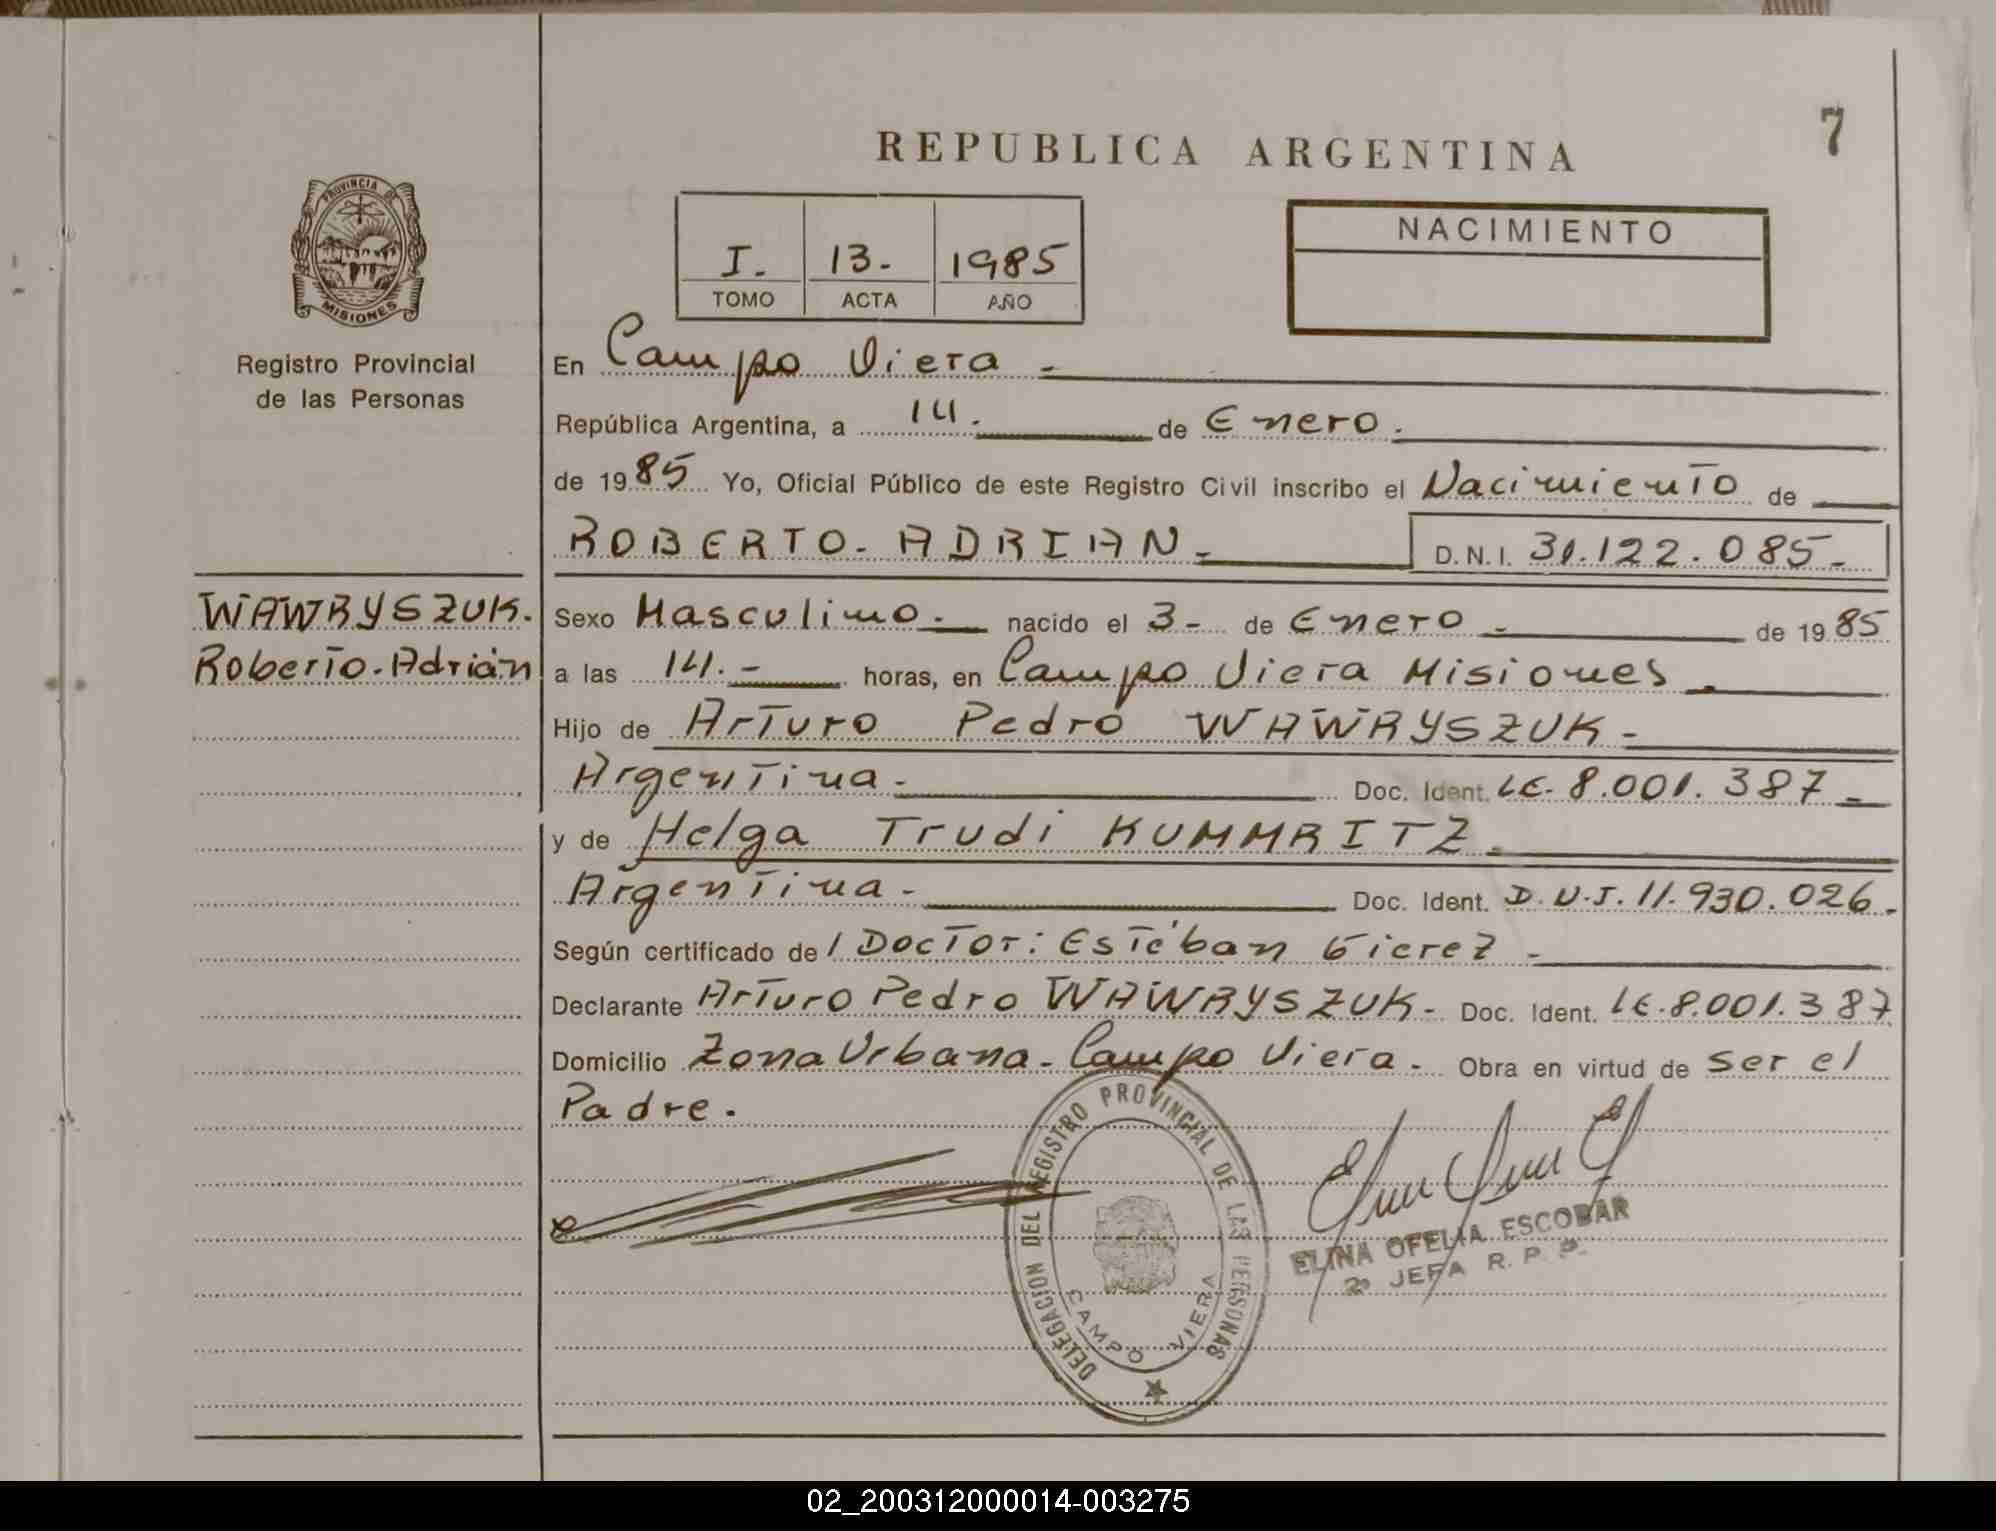 7
REPUBLICA ARGENTINA
PROVINCIA DE
MISIONES
Registro Provincial
de las Personas
NACIMIENTO
I. 13- 1985
TOMO ACTA AÑO
En Campo Viera -
República Argentina, a 14. de Enero.
de 1985 Yo, Oficial Público de este Registro Civil inscribo el Nacimiento de
ROBERTO- ADRIAN - D.N.I. 31.122.085-
WAWRYSZUK.
Roberto-Adrián
Sexo Masculino. nacido el 3- de Enero - de 1985
a las 14.- horas, en Campo Viera Misiones.
Hijo de Arturo Pedro WAWRYSZUK-
Argentina- Doc. Ident. LE-8.001.387-
y de Helga Trudi KUMMRITZ.
Argentina- Doc. Ident. D.U.I. 11.930.026-
Según certificado de / Doctor: Estéban -
Declarante Arturo Pedro WAWRYSZUK- Doc. Ident. LE.8.001.387
Domicilio Zona Urbana- Campo Viera- Obra en virtud de ser el
Padre.
DELEGACION DEL REGISTRO PROVINCIAL DE LAS PERSONAS
CAMPO VIERA
ELINA OFELIA ESCOBAR
JEFA R. P. P.
02_200312000014-003275